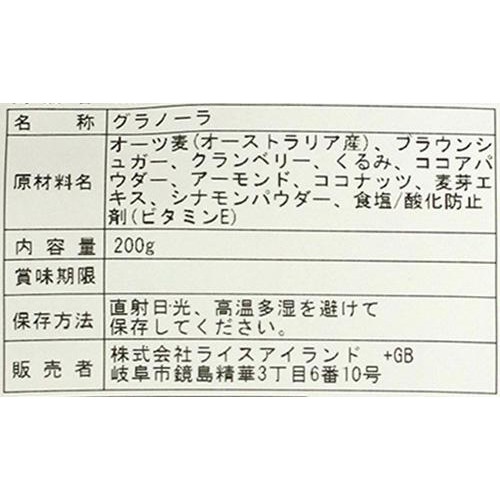 名称 グラノーラ
原材料名 オーツ麦(オーストラリア産)、ブラウンシ
ュガー、クランベリー、くるみ、ココアパ
ウダー、アーモンド、ココナッツ、麦芽エ
キス、シナモンパウダー、食塩/酸化防止
剤(ビタミンE)
内容量 200g
賞味期限
保存方法 直射日光、高温多湿を避けて
保存してください。
販売者 株式会社ライスアイランド +GB
岐阜市鏡島精華3丁目6番10号